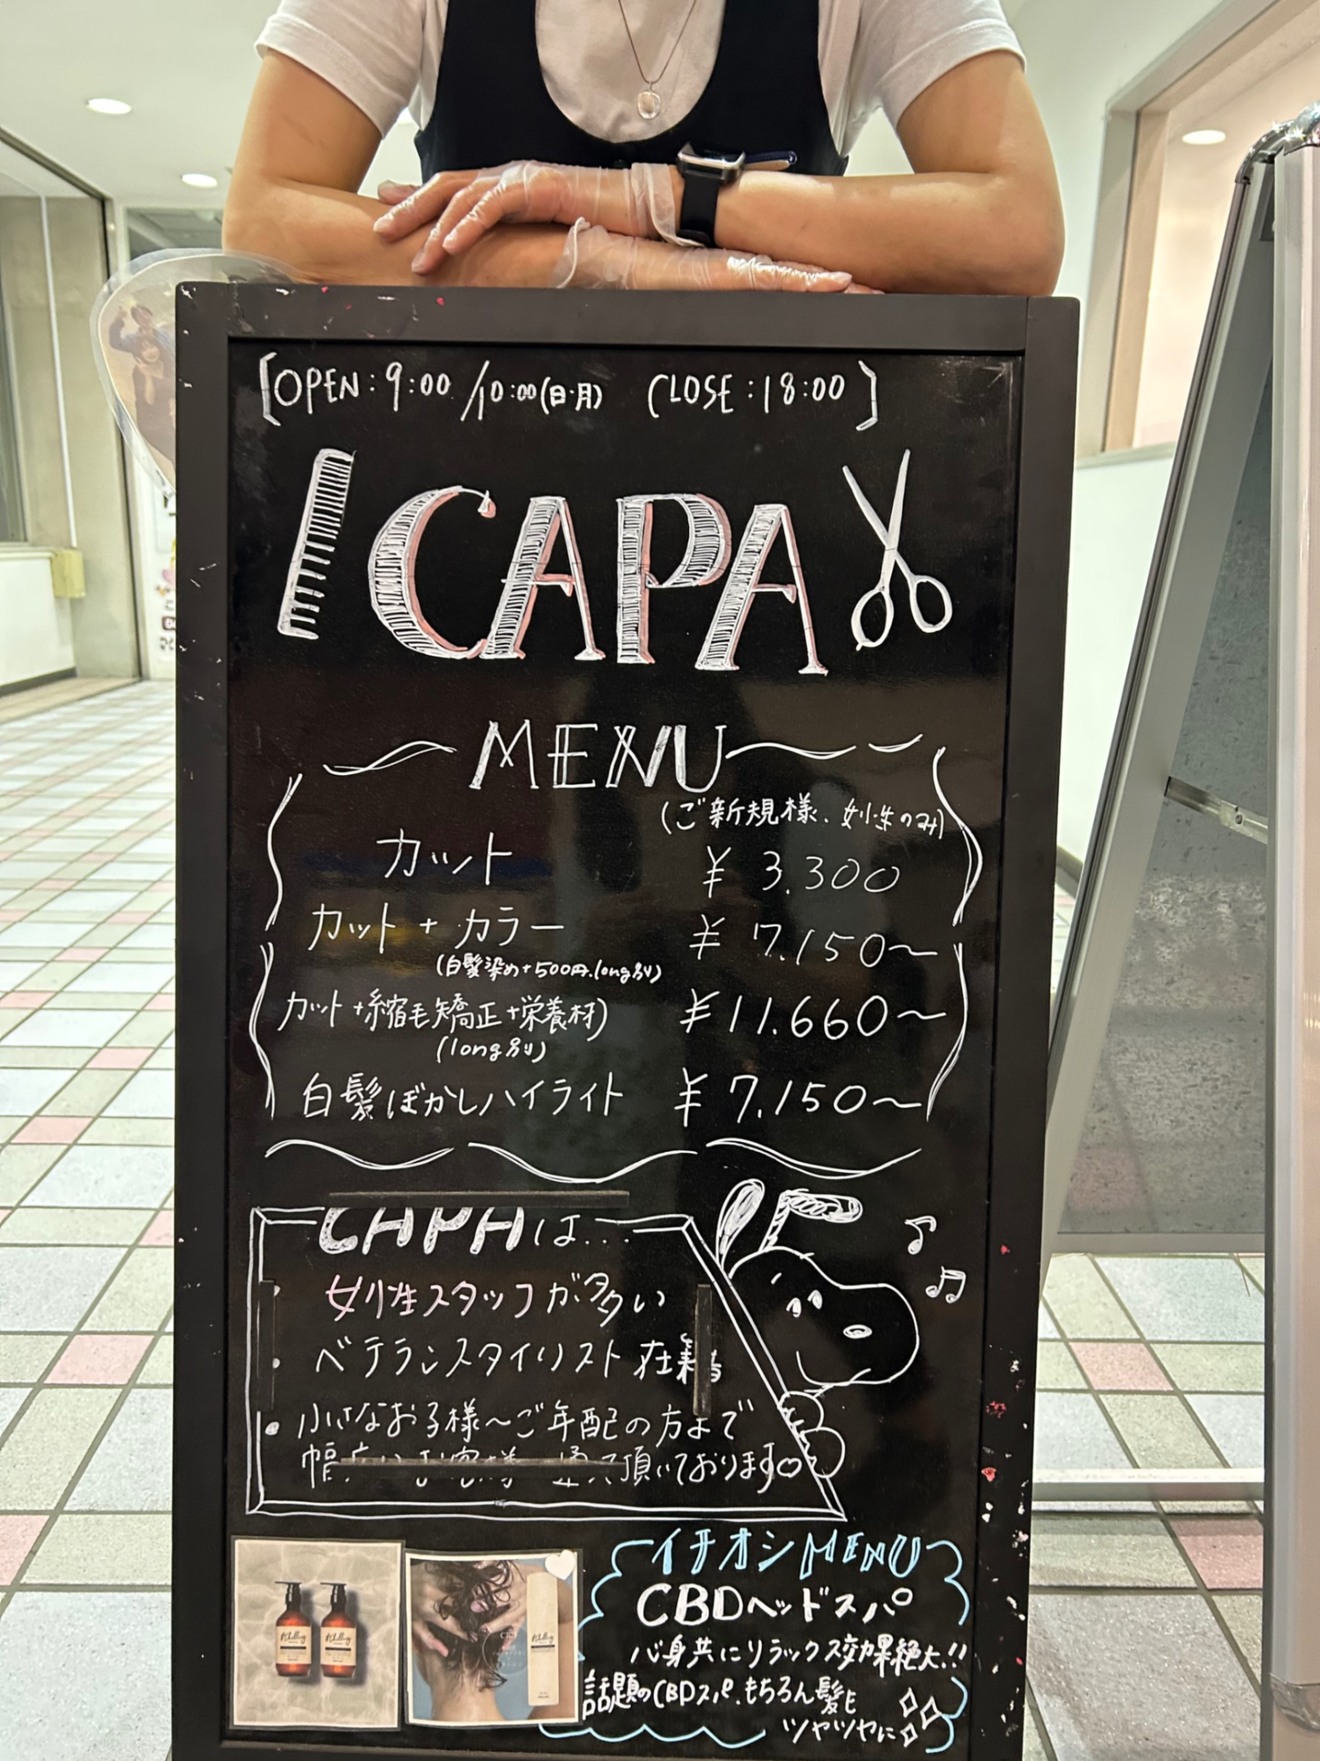 [OPEN:9:00/10:00(日・月) CLOSE:18:00]
CAPA
MENU
(ご新規様、女性のみ)
カット ¥3.300
カット+カラー ¥7.150〜
(白髪染め+500円.long別)
カット+縮毛矯正+栄養材) ¥11.660〜
(long別)
白髪ぼかしハイライト ¥7.150〜
CAPAは...
・女性スタッフが多い
・ベテランスタイリスト在籍
・小さなお子様〜ご年配の方まで
幅広いお客様 通って頂いております。
イチオシMENU
CBDヘッドスパ
心身共にリラックス効果絶大!!
話題のCBDスパ、もちろん髪も
ツヤツヤに